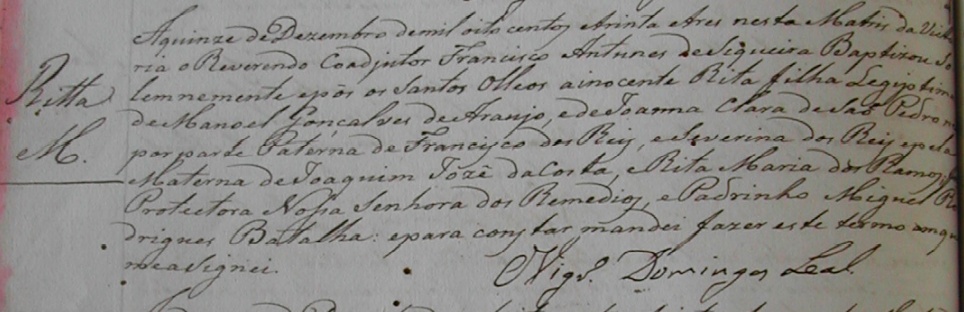 Aquinze deDezembro demil oito centos etrinta etres nesta Matris da Victo
ria o Reverendo Coadjutor Francisco Antunes deSiqueira Baptizou So
lemnemente epôs os Santos Olleos ainocente Rita filha Legijotima
deManoel Gonçalves de Araujo, edeJoanna Clara deSaõ Pedro
Ritta
por parte Paterna de Francisco dos Reis, eSeverina dos Reis epela
M.
Materna deJoaquim Jozê daCosta, eRita Maria dos Ramos,
Protectora Nossa Senhora dos Remedios, ePadrinho Miguel Ro
drigues Batalha: epara constar mandei fazer este termo emq
measignei.
Vigr.o Domingos Leal.